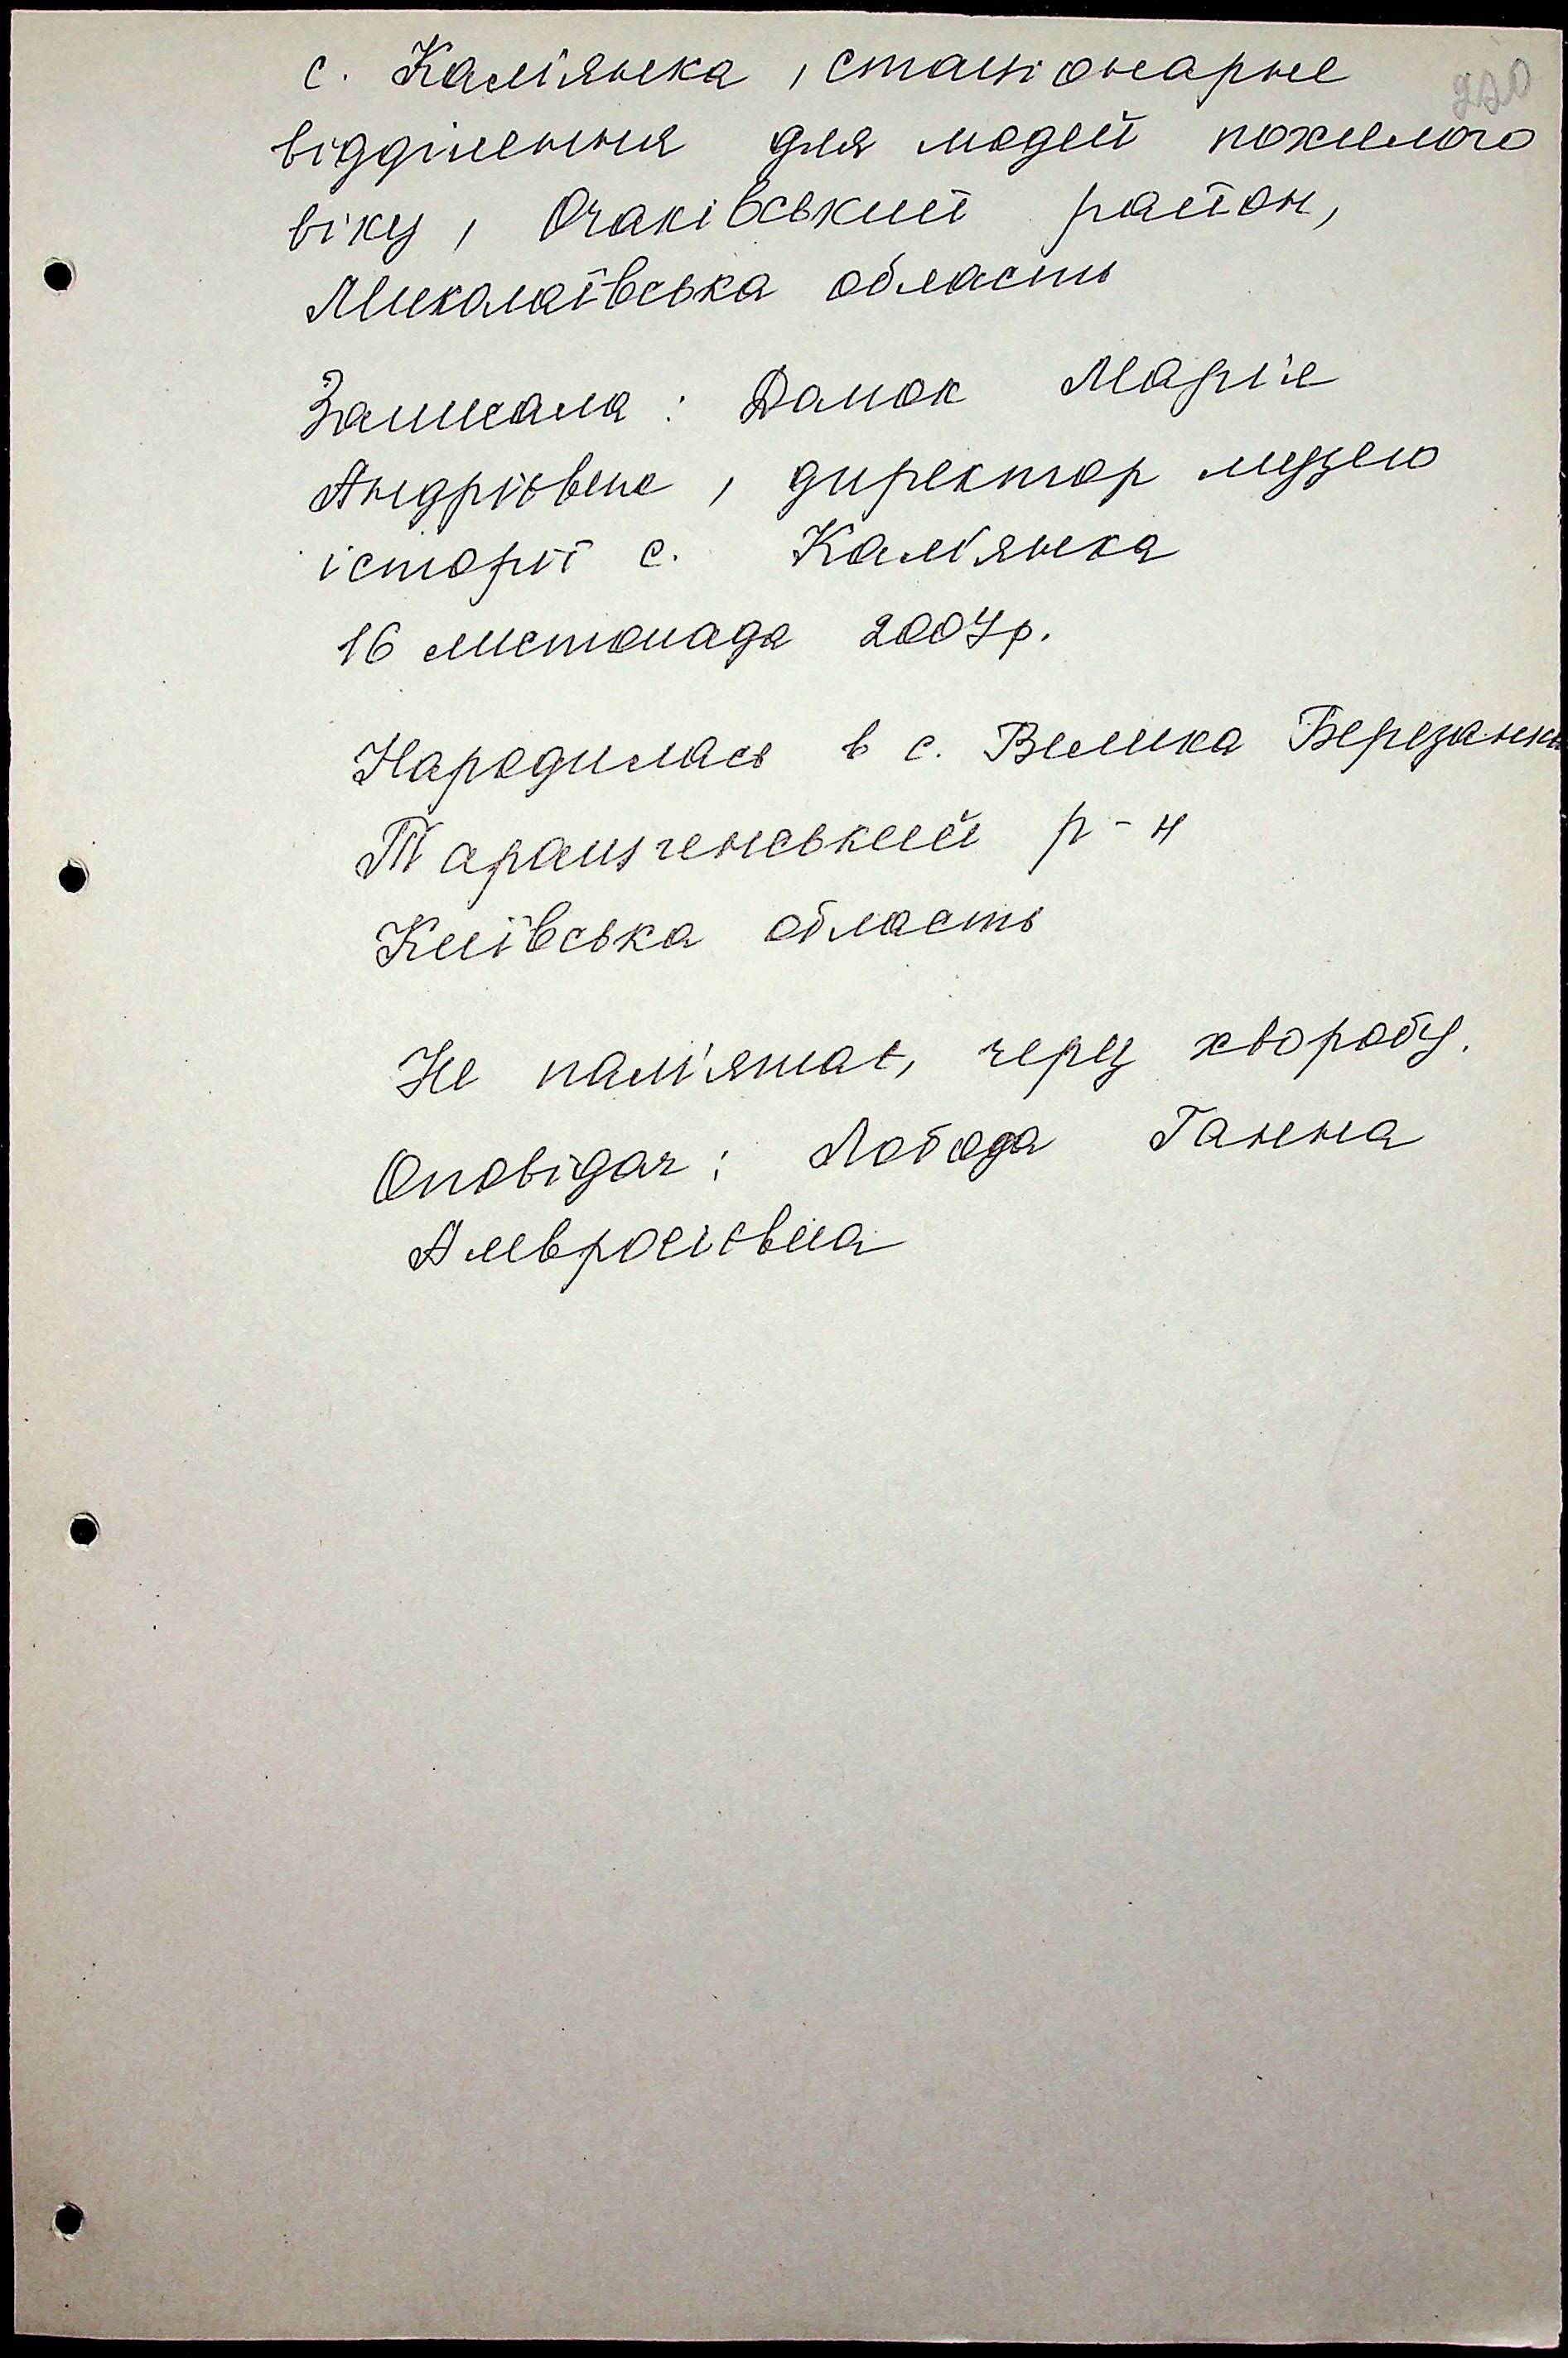 220
с. Кам'янка, стаціонарне
відділення для людей похилого
віку, Очаківський район,
Миколаївська область
Записала: Данок Марія
Андріївна, директор музею
історії с. Кам'янка
16 листопада 2007р.
Народилась в с. Велика Березанка
Таращенський р-н
Київська область
Не пам'ятає, через хворобу.
Оповідач: Лобода Ганна
Амвросіївна